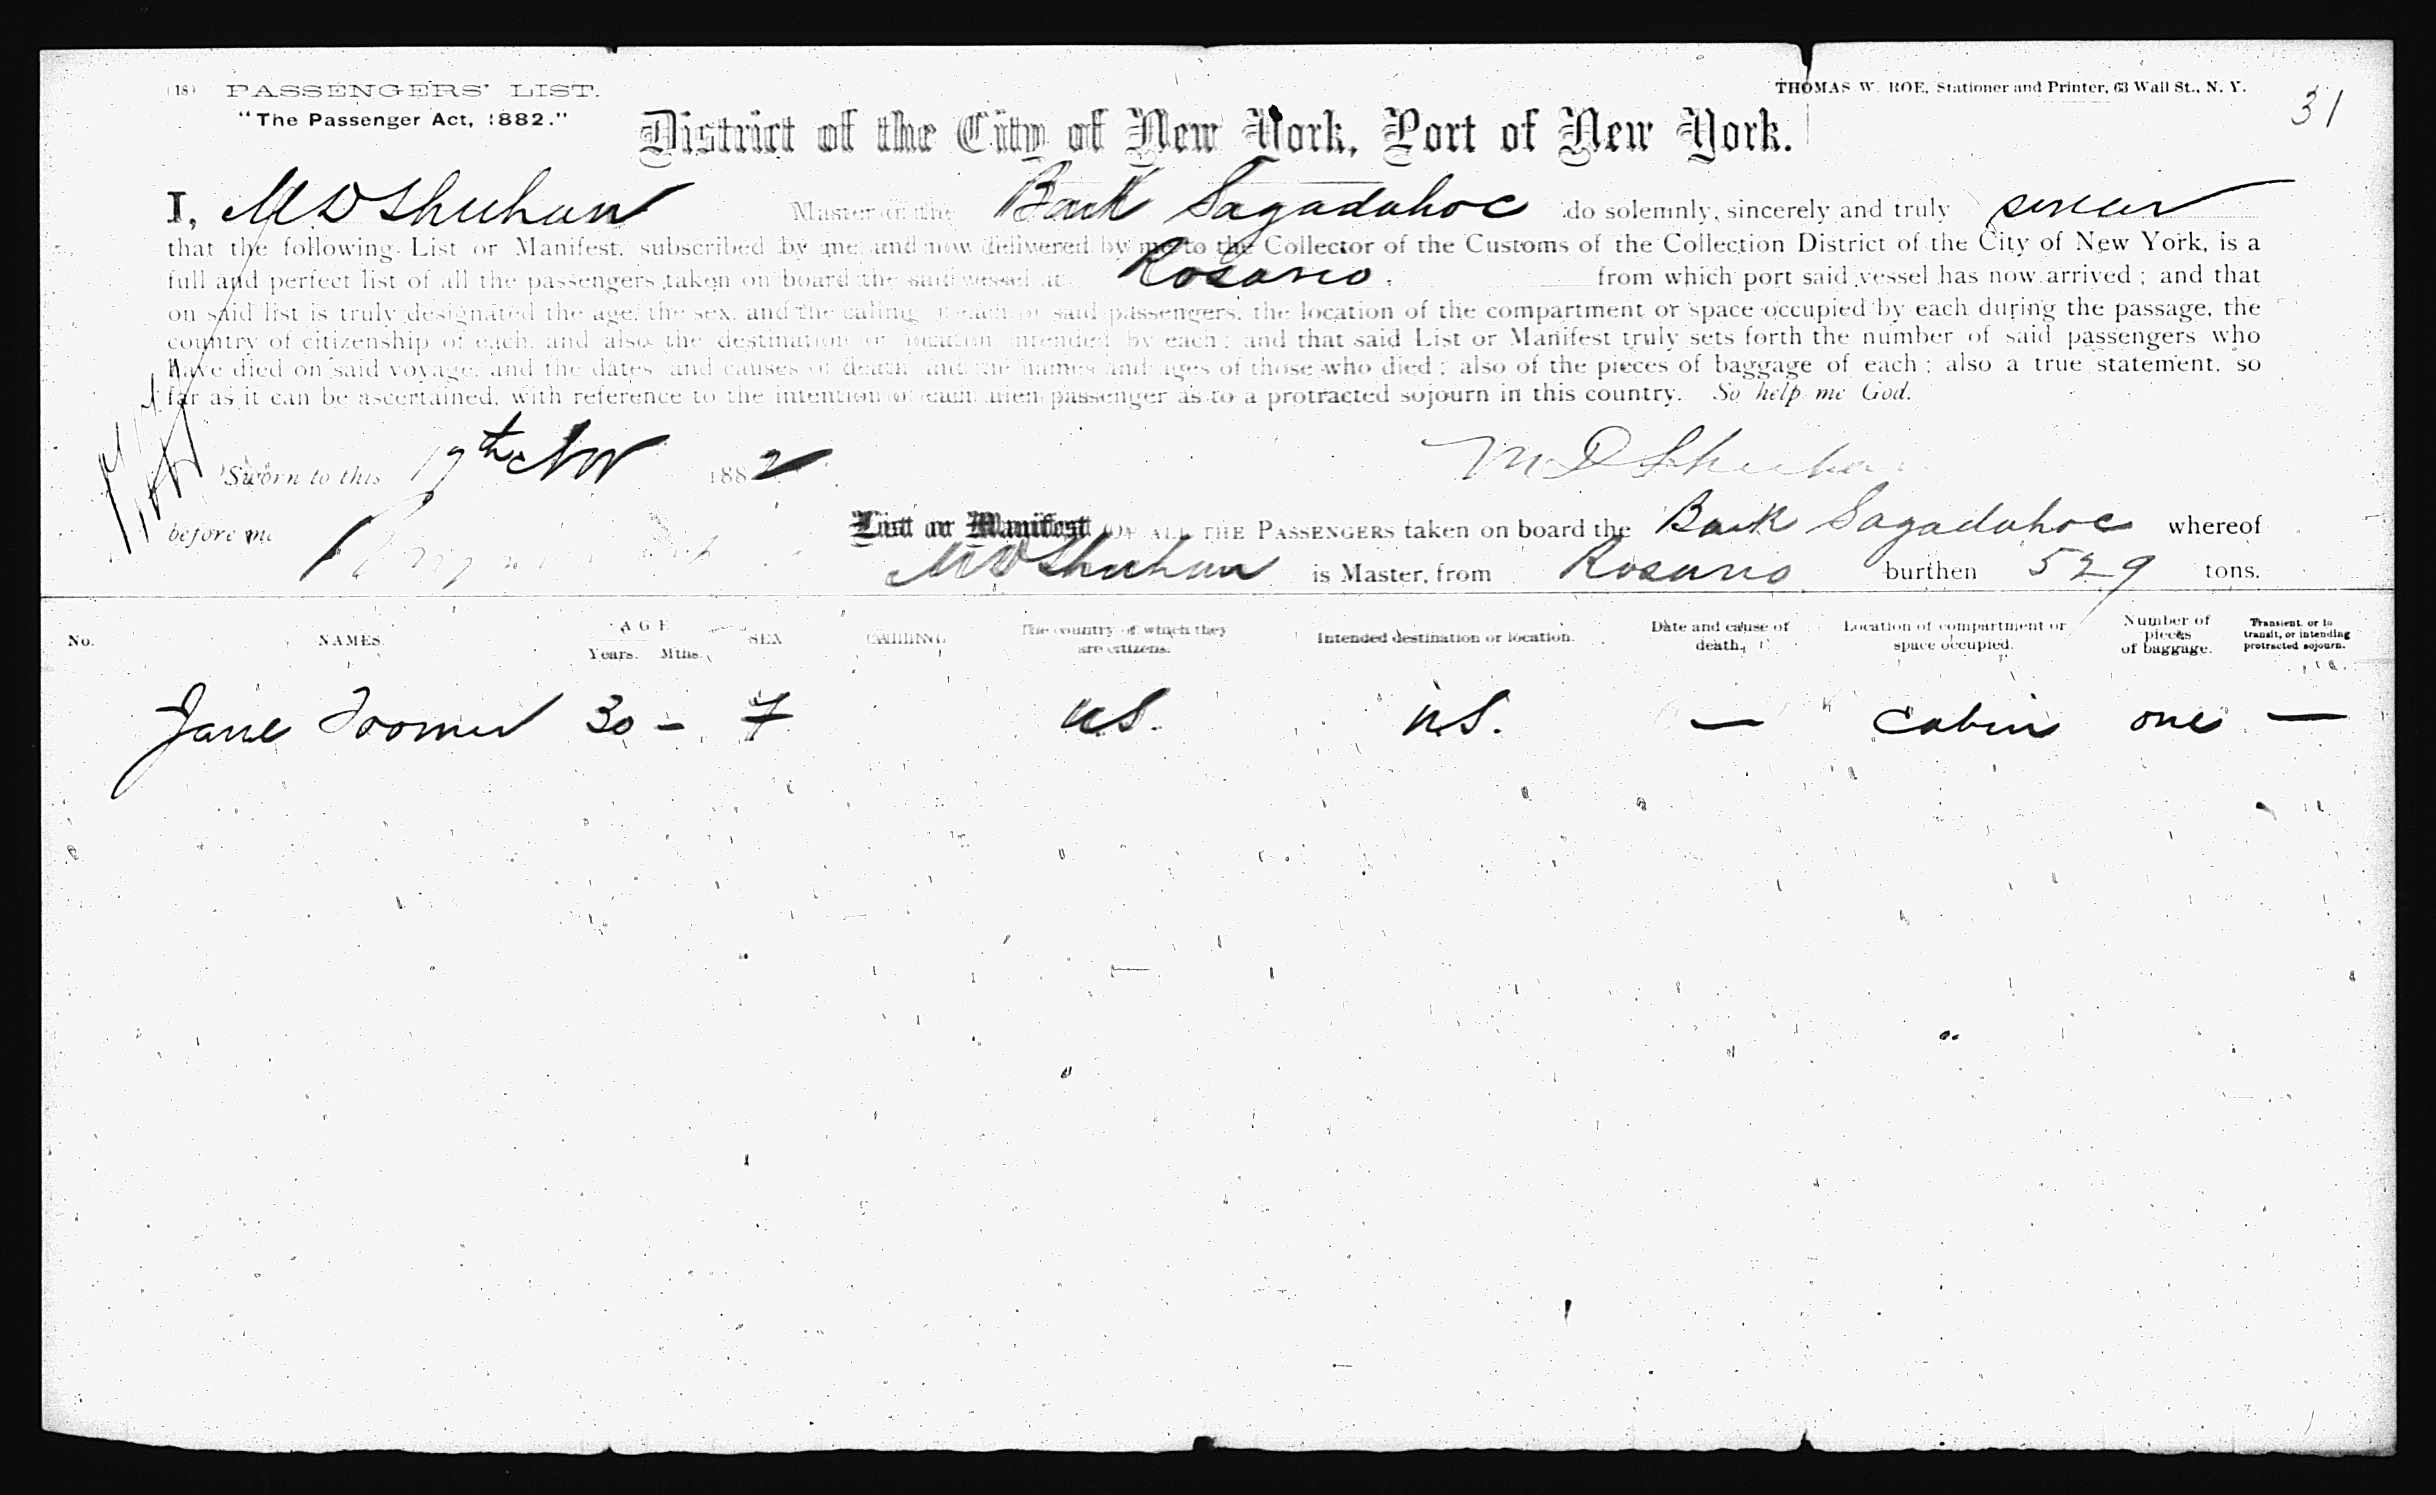 (18) PASSENGERS' LIST.
THOMAS W. ROE, Stationer and Printer, 63 Wall St., N. Y.
31
"The Passenger Act, 1882."
District of the City of New York, Port of New York.
I, M D Sheehan Master of the Bark Sagadahoc do solemnly, sincerely and truly swear
that the following List or Manifest, subscribed by me, and now delivered by me to the Collector of the Customs of the Collection District of the City of New York, is a
full and perfect list of all the passengers taken on board the said vessel at Rosario. from which port said vessel has now arrived; and that
on said list is truly designated the age, the sex, and the calling of each of said passengers, the location of the compartment or space occupied by each during the passage, the
country of citizenship of each, and also the destination or location intended by each; and that said List or Manifest truly sets forth the number of said passengers who
have died on said voyage, and the dates and causes of death and the names and ages of those who died; also of the pieces of baggage of each; also a true statement, so
far as it can be ascertained, with reference to the intention of each alien passenger as to a protracted sojourn in this country. So help me God.
Sworn to this 19th Nov 1882 M D Sheehan
before me
List or Manifest OF ALL THE PASSENGERS taken on board the Bark Sagadahoc whereof
M D Sheehan is Master, from Rosario burthen 529 tons.
No. NAMES. AGE Years. Mths. SEX CALLING. The country of which they are citizens. Intended destination or location. Date and cause of death. Location of compartment or space occupied. Number of pieces of baggage. Transient, or in transit, or intending protracted sojourn.
Jane Toomer 30 – F US. US. — Cabin one —